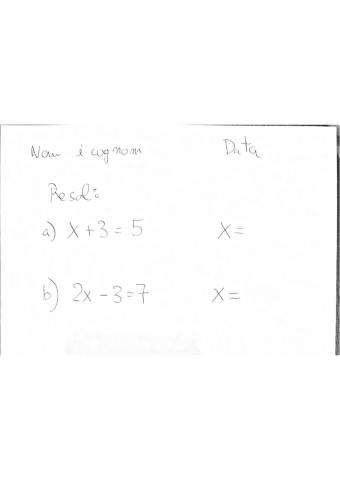 Nom i cognom Data
Resol:
a) x + 3 = 5 x =
b) 2x - 3 = 7 x =